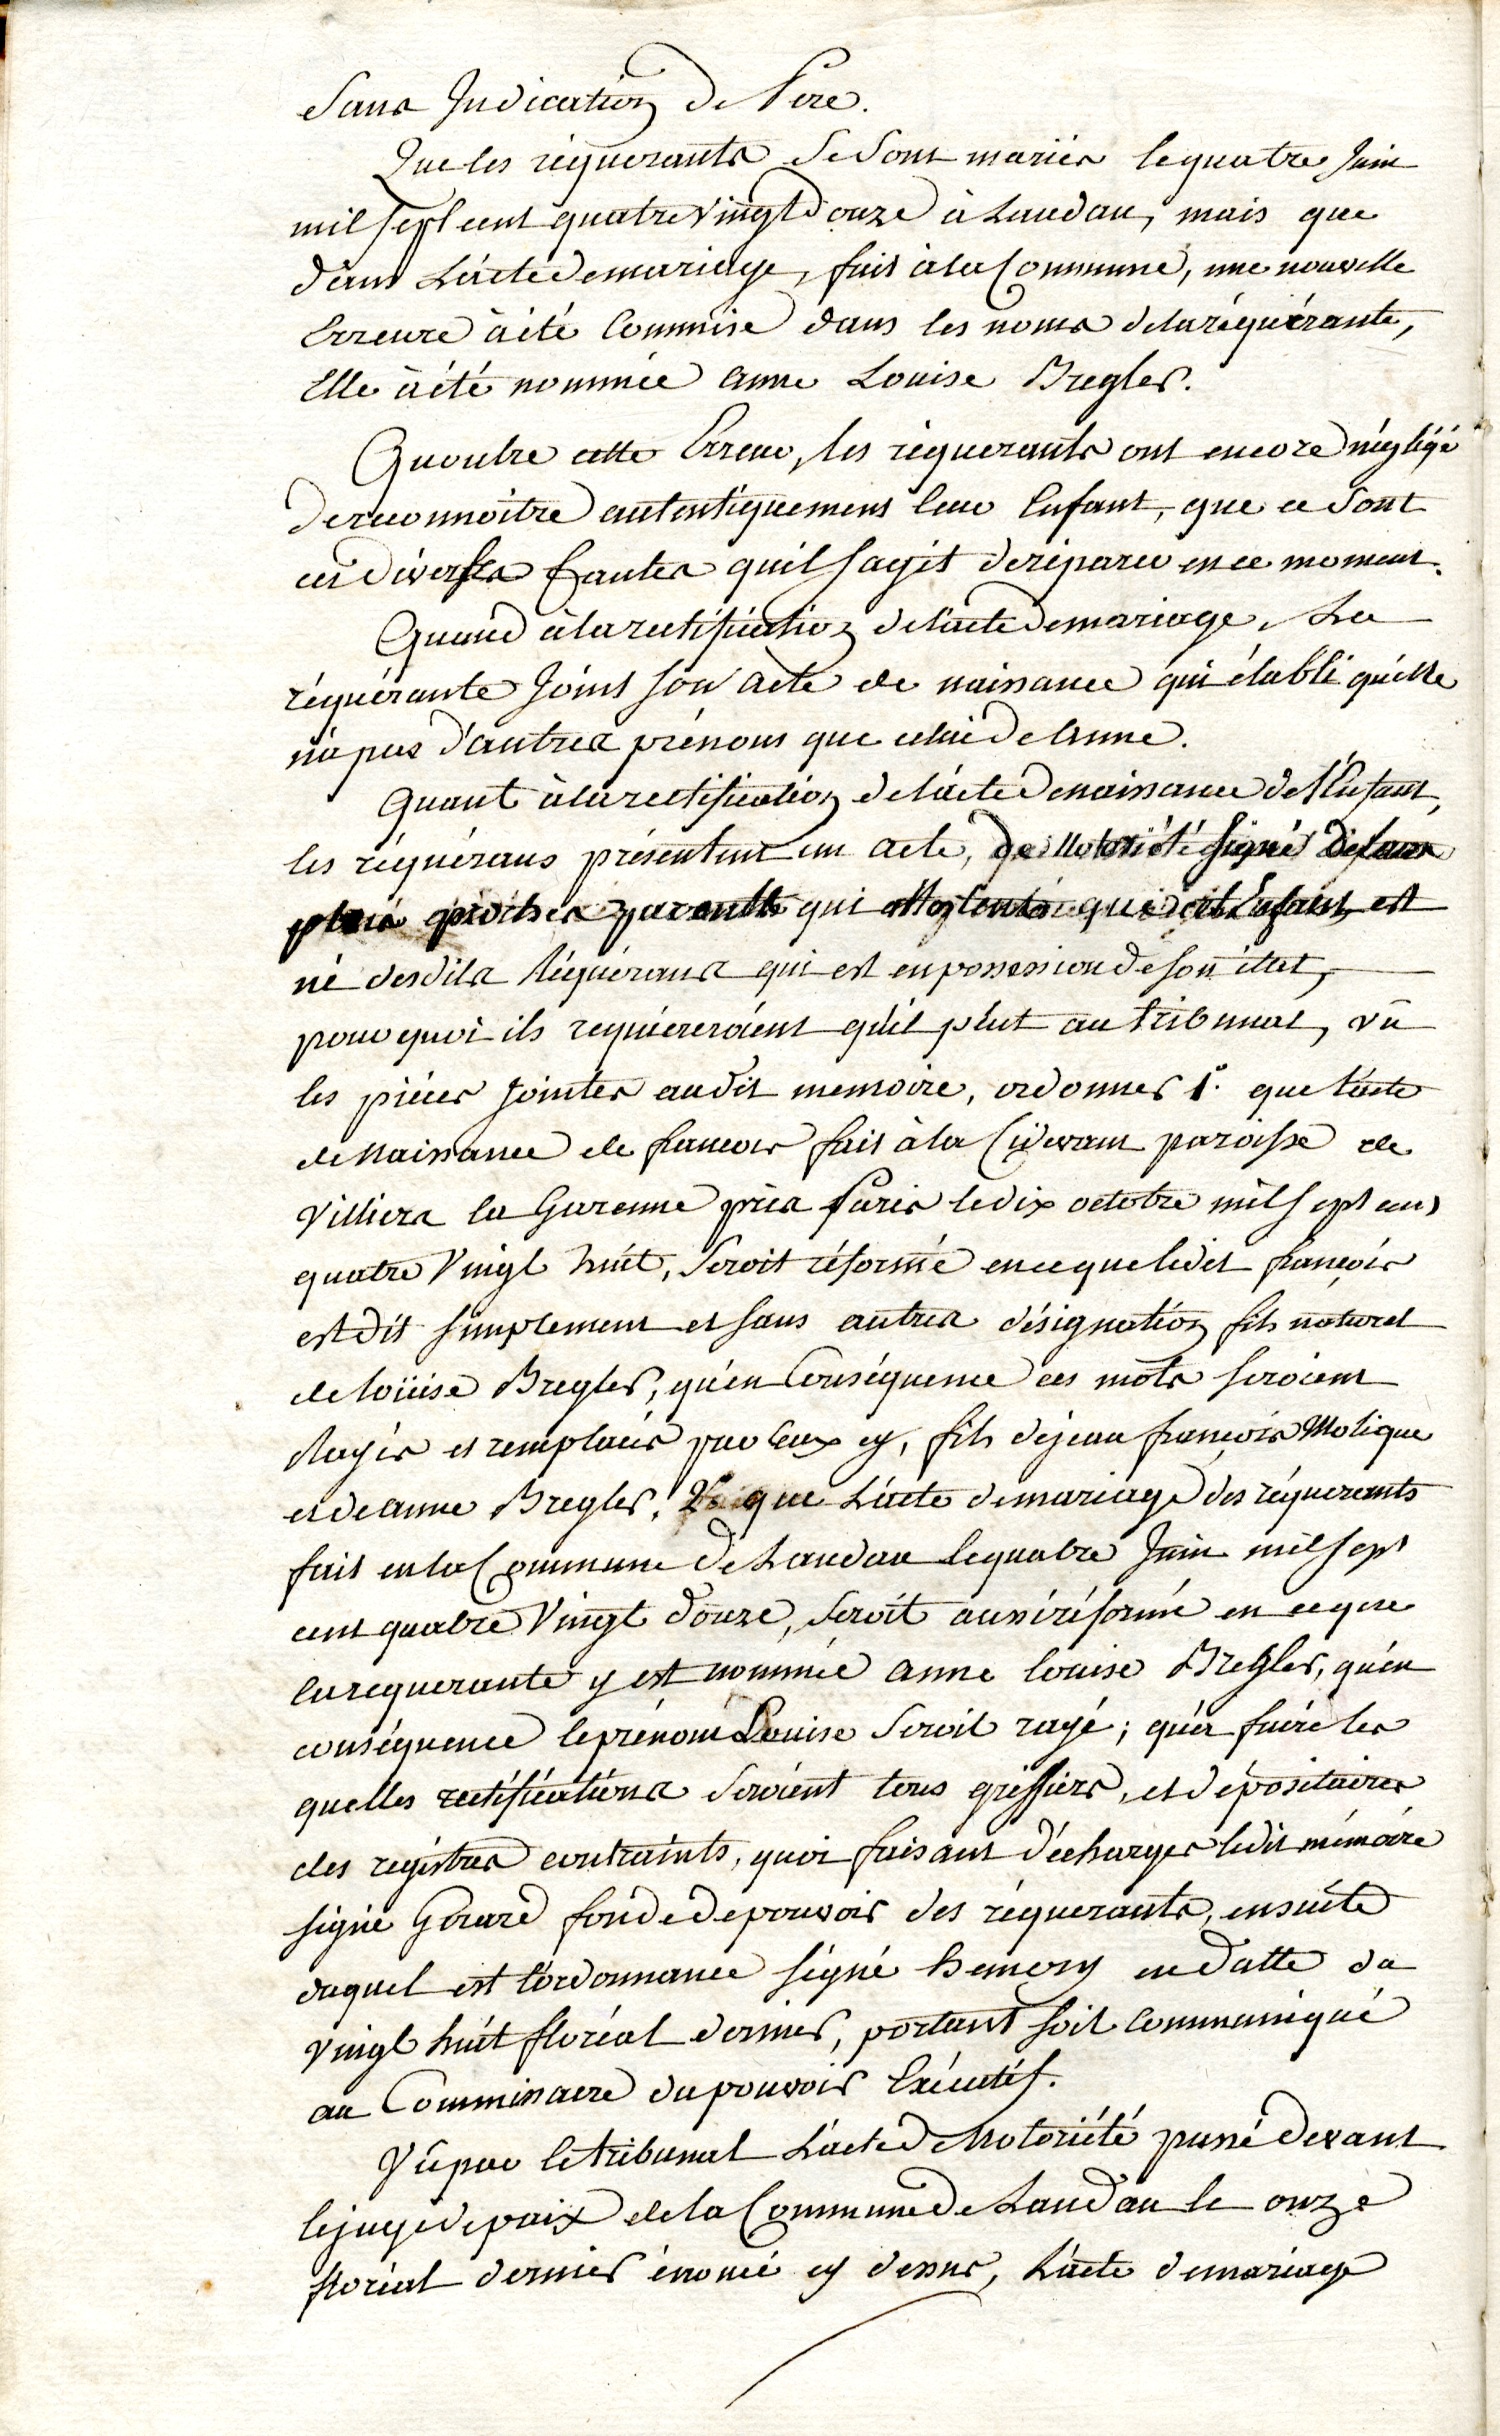 Sans Indication de Pere.
Que les réquerants se sont mariés le quatre Juin
mil sept cent quatre vingt douze à Landau, mais que
dans L'acte de mariage, fait à la Commune, une nouvelle
Erreure à été Commise dans les noms de la réquérante,
Elle à été nommée Anne Louise Bregler.
Qu'outre cette Erreur, les réquerants ont encore négligé
de reconnoitre autentiquement leur Enfant, que ce sont
ces diverses fautes qu'il s'agit de réparer en ce moment.
Quand à la rectification de l'acte de mariage, La
réquérante Joint son acte de naissance qui établi qu'elle
n'a pas d'autres prénoms que celui de Anne.
Quant à la rectification de l'acte de naissance de l'Enfant,
les réquérans présentent un acte, de Notoriété signé de leurs
plus proches parents qui attestent que cet Enfant est
né desdits Réquérans qui est en possession de son état,
pourquoi ils requiereroient qu'il plut au tribunal, vû
les piéces Jointes audit memoire, ordonner 1° que l'acte
de Naissance de francois fait à la Cidevant paroisse de
Villiers la Garenne près Paris le dix octobre mil sept cent
quatre Vingt huit, Seroit réformé en ce que ledit françois
est dit simplement et sans autres désignation fils naturel
de loüise Bregler, qu'en Conséquence ces mots seroient
Rayés et remplacés par Ceux cy, fils de jean françois Molique
et de anne Bregler, 2° que L'acte de mariage des réquerents
fait en la Commune de Landau le quatre Juin mil sept
cent quatre Vingt douze, Seroit aussi réformé en ce que
la requerante y est nommée anne louise Bregler, qu'en
conséquence le prénom Louise seroit rayé; qu'à faire les
quelles rectifications seroient tous greffiers, et dépositaires
des registres contraints, quoi faisant décharger ledit mémoire
signé Gérard fondé de pouvoir des réquerants, ensuite
duquel est l'ordonnance signé hemery en datte du
vingt huit floréal dernier, portant soit Communiqué
au Commissaire du pouvoir Exécutif.
Vû par le tribunal L'acte de Notoriété passé devant
le juge de paix de la Commune de Landau le onze
floréal dernier énoncé cy dessus, L'acte de mariage